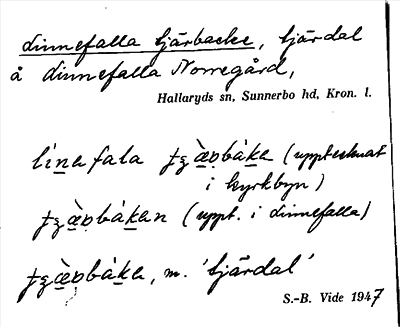 Linnefalla tjärbacke, tjärdal
å Linnefalla Norregård,
Hallaryds sn, Sunnerbo hd, Kron. l.
línefala (upptecknat
i kyrkbyn)
(uppt. i Linnefalla)
m. 'tjärdal'
S.-B. Vide 1947